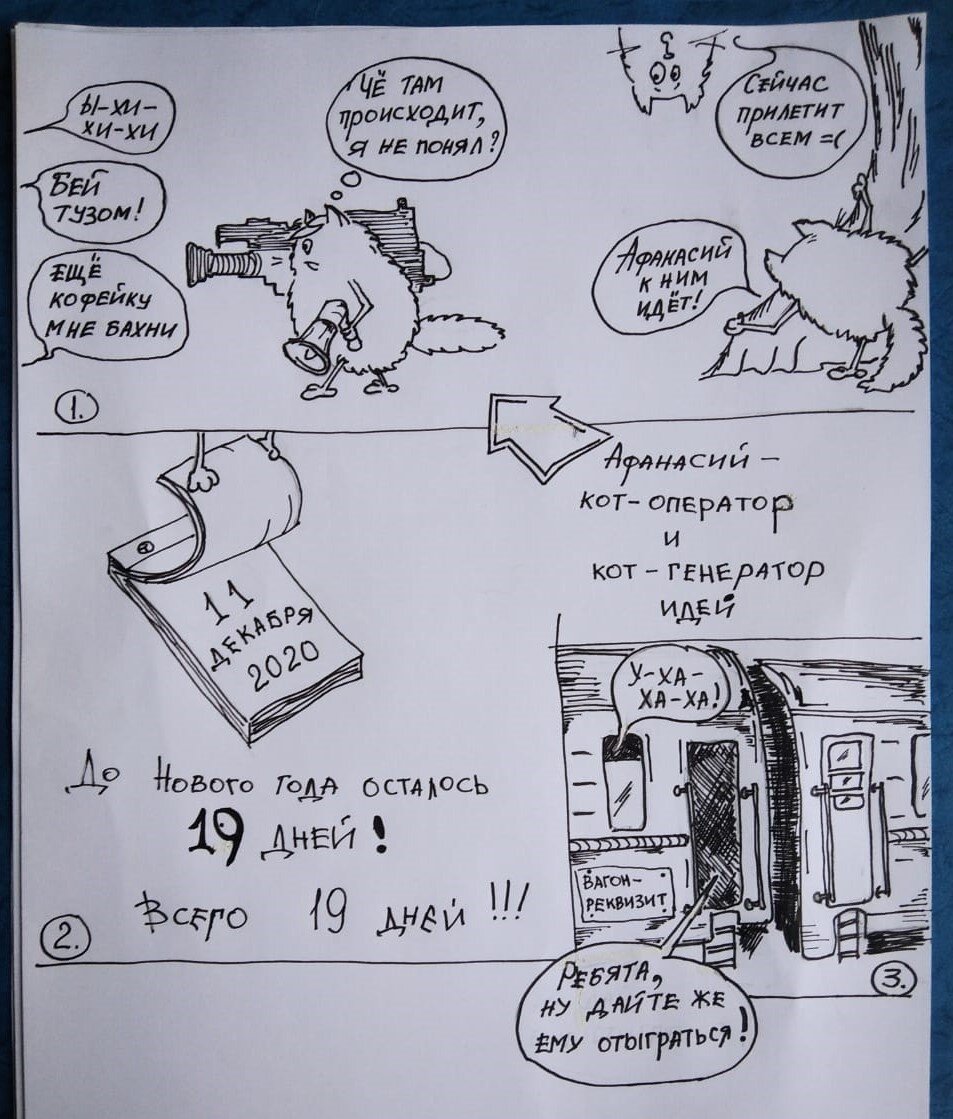 Ы-ХИ-
ХИ-ХИ
БЕЙ
ТУЗОМ!
ЕЩЁ
КОФЕЙКУ
МНЕ БАХНИ
ЧЁ ТАМ
ПРОИСХОДИТ,
Я НЕ ПОНЯЛ?
СЕЙЧАС
ПРИЛЕТИТ
ВСЕМ =(
АФАНАСИЙ
К НИМ
ИДЁТ!
1.
АФАНАСИЙ -
КОТ-ОПЕРАТОР
И
КОТ - ГЕНЕРАТОР
ИДЕЙ
11
ДЕКАБРЯ
2020
ДО НОВОГО ГОДА ОСТАЛОСЬ
19 ДНЕЙ!
ВСЕГО 19 ДНЕЙ!!!
2.
У-ХА-
ХА-ХА!
ВАГОН-
РЕКВИЗИТ
РЕБЯТА,
НУ ДАЙТЕ ЖЕ
ЕМУ ОТЫГРАТЬСЯ!
3.